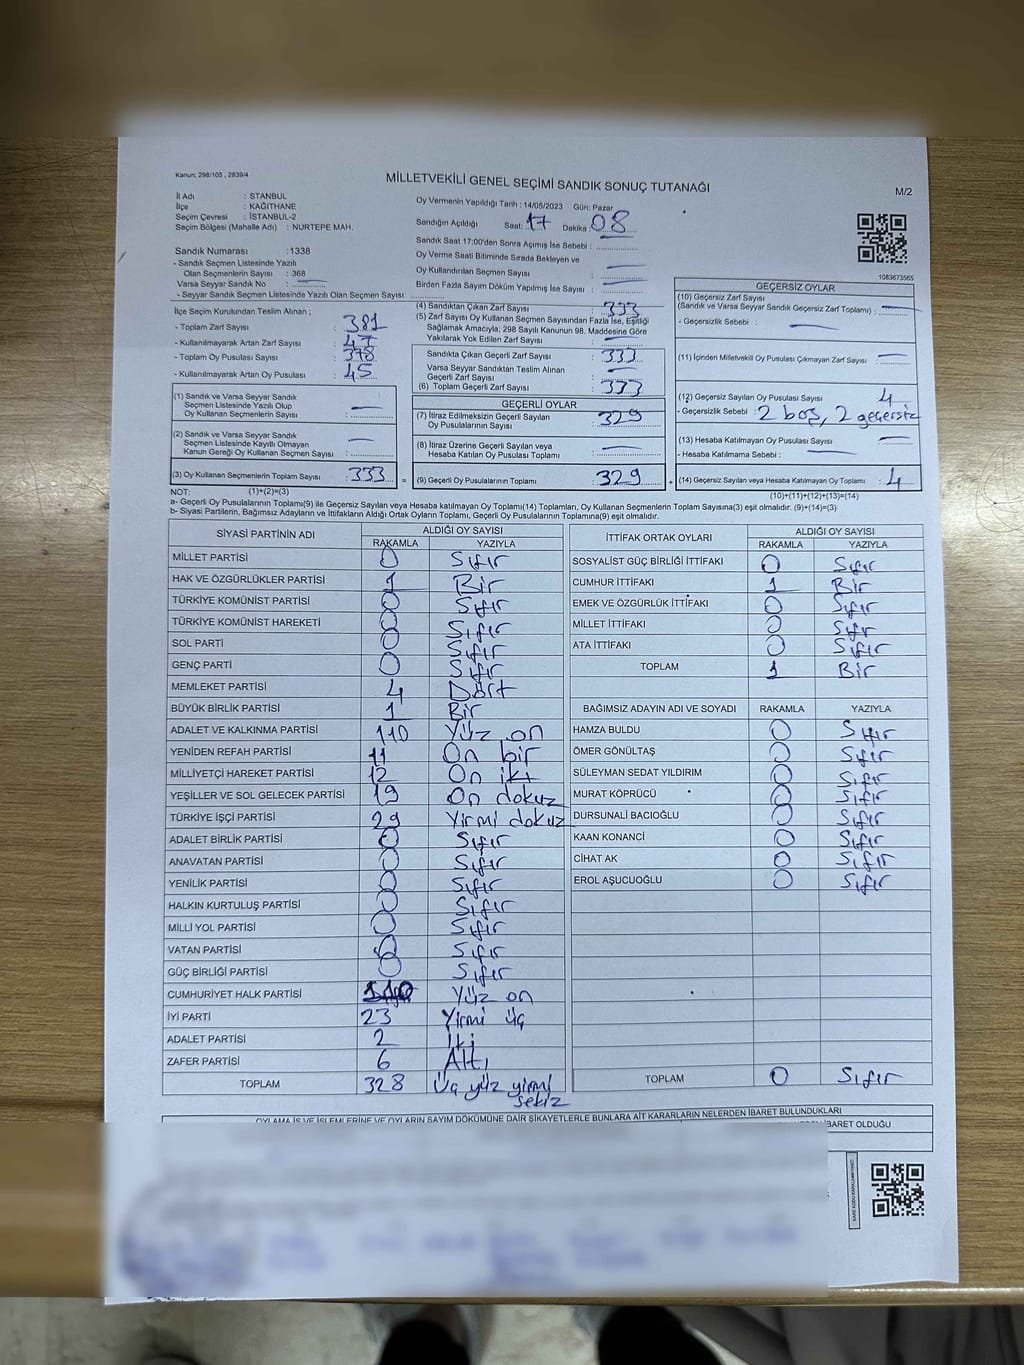 Kanun; 298/105 , 2839/4
MİLLETVEKİLİ GENEL SEÇİMİ SANDIK SONUÇ TUTANAĞI
M/2
İl Adı : STANBUL
İlçe : KAĞITHANE
Seçim Çevresi : İSTANBUL-2
Seçim Bölgesi (Mahalle Adı) : NURTEPE MAH.
Oy Vermenin Yapıldığı Tarih : 14/05/2023 Gün: Pazar
Sandığın Açıldığı Saat: 17 Dakika: 08
Sandık Saat 17:00'den Sonra Açımış İse Sebebi :
Oy Verme Saati Bitiminde Sırada Bekleyen ve
Oy Kullandırılan Seçmen Sayısı :
Birden Fazla Sayım Döküm Yapılmış İse Sayısı :
Sandık Numarası :1338
- Sandık Seçmen Listesinde Yazılı
Olan Seçmenlerin Sayısı : 368
Varsa Seyyar Sandık No :
- Seyyar Sandık Seçmen Listesinde Yazılı Olan Seçmen Sayısı:
1083673565
İlçe Seçim Kurulundan Teslim Alınan ;
- Toplam Zarf Sayısı : 381
- Kullanılmayarak Artan Zarf Sayısı : 47
- Toplam Oy Pusulası Sayısı : 378
- Kullanılmayarak Artan Oy Pusulası : 45
(1) Sandık ve Varsa Seyyar Sandık
Seçmen Listesinde Yazılı Olup
Oy Kullanan Seçmenlerin Sayısı :
(2) Sandık ve Varsa Seyyar Sandık
Seçmen Listesinde Kayıtlı Olmayan
Kanun Gereği Oy Kullanan Seçmen Sayısı :
(3) Oy Kullanan Seçmenlerin Toplam Sayısı : 333
(4) Sandıktan Çıkan Zarf Sayısı : 333
(5) Zarf Sayısı Oy Kullanan Seçmen Sayısından Fazla İse, Eşitliği
Sağlamak Amacıyla; 298 Sayılı Kanunun 98. Maddesine Göre
Yakılarak Yok Edilen Zarf Sayısı :
Sandıkta Çıkan Geçerli Zarf Sayısı : 333
Varsa Seyyar Sandıktan Teslim Alınan
Geçerli Zarf Sayısı :
(6) Toplam Geçerli Zarf Sayısı : 333
GEÇERLİ OYLAR
(7) İtiraz Edilmeksizin Geçerli Sayılan
Oy Pusulalarının Sayısı : 329
(8) İtiraz Üzerine Geçerli Sayılan veya
Hesaba Katılan Oy Pusulası Toplamı :
(9) Geçerli Oy Pusulalarının Toplamı : 329
GEÇERSİZ OYLAR
(10) Geçersiz Zarf Sayısı
(Sandık ve Varsa Seyyar Sandık Geçersiz Zarf Toplamı) :
- Geçersizlik Sebebi :
(11) İçinden Milletvekili Oy Pusulası Çıkmayan Zarf Sayısı :
(12) Geçersiz Sayılan Oy Pusulası Sayısı : 4
- Geçersizlik Sebebi : 2 boş, 2 geçersiz
(13) Hesaba Katılmayan Oy Pusulası Sayısı :
- Hesaba Katılmama Sebebi :
(14) Geçersiz Sayılan veya Hesaba Katılmayan Oy Toplamı : 4
NOT: (1)+(2)=(3)
(10)+(11)+(12)+(13)=(14)
a- Geçerli Oy Pusulalarının Toplamı(9) ile Geçersiz Sayılan veya Hesaba katılmayan Oy Toplamı(14) Toplamları, Oy Kullanan Seçmenlerin Toplam Sayısına(3) eşit olmalıdır. (9)+(14)=(3)
b- Siyasi Partilerin, Bağımsız Adayların ve İttifakların Aldığı Ortak Oyların Toplamı, Geçerli Oy Pusulalarının Toplamına(9) eşit olmalıdır.
SİYASİ PARTİNİN ADI ALDIĞI OY SAYISI
RAKAMLA YAZIYLA
MİLLET PARTİSİ 0 Sıfır
HAK VE ÖZGÜRLÜKLER PARTİSİ 1 Bir
TÜRKİYE KOMÜNİST PARTİSİ 0 Sıfır
TÜRKİYE KOMÜNİST HAREKETİ 0 Sıfır
SOL PARTİ 0 Sıfır
GENÇ PARTİ 0 Sıfır
MEMLEKET PARTİSİ 4 Dört
BÜYÜK BİRLİK PARTİSİ 1 Bir
ADALET VE KALKINMA PARTİSİ 110 Yüz on
YENİDEN REFAH PARTİSİ 11 On bir
MİLLİYETÇİ HAREKET PARTİSİ 12 On iki
YEŞİLLER VE SOL GELECEK PARTİSİ 19 On dokuz
TÜRKİYE İŞÇİ PARTİSİ 29 Yirmi dokuz
ADALET BİRLİK PARTİSİ 0 Sıfır
ANAVATAN PARTİSİ 0 Sıfır
YENİLİK PARTİSİ 0 Sıfır
HALKIN KURTULUŞ PARTİSİ 0 Sıfır
MİLLİ YOL PARTİSİ 0 Sıfır
VATAN PARTİSİ 0 Sıfır
GÜÇ BİRLİĞİ PARTİSİ 0 Sıfır
CUMHURİYET HALK PARTİSİ 110 Yüz on
İYİ PARTİ 23 Yirmi üç
ADALET PARTİSİ 2 İki
ZAFER PARTİSİ 6 Altı
TOPLAM 328 Üç yüz yirmi
sekiz
İTTİFAK ORTAK OYLARI ALDIĞI OY SAYISI
RAKAMLA YAZIYLA
SOSYALİST GÜÇ BİRLİĞİ İTTİFAKI 0 Sıfır
CUMHUR İTTİFAKI 1 Bir
EMEK VE ÖZGÜRLÜK İTTİFAKI 0 Sıfır
MİLLET İTTİFAKI 0 Sıfır
ATA İTTİFAKI 0 Sıfır
TOPLAM 1 Bir
BAĞIMSIZ ADAYIN ADI VE SOYADI RAKAMLA YAZIYLA
HAMZA BULDU 0 Sıfır
ÖMER GÖNÜLTAŞ 0 Sıfır
SÜLEYMAN SEDAT YILDIRIM 0 Sıfır
MURAT KÖPRÜCÜ 0 Sıfır
DURSUNALİ BACIOĞLU 0 Sıfır
KAAN KONANCİ 0 Sıfır
CİHAT AK 0 Sıfır
EROL AŞUCUOĞLU 0 Sıfır
TOPLAM 0 Sıfır
OYLAMA İŞ VE İŞLEMLERİNE VE OYLARIN SAYIM DÖKÜMÜNE DAİR ŞİKAYETLERLE BUNLARA AİT KARARLARIN NELERDEN İBARET BULUNDUKLARI
İBARET OLDUĞU